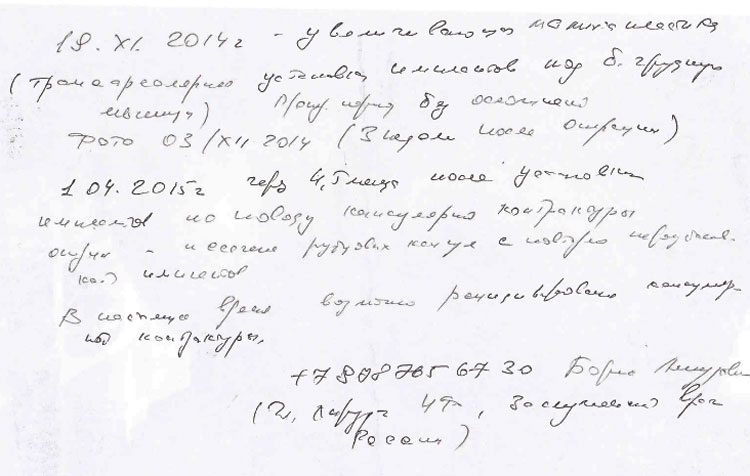 19. XI. 2014г - увеличивающая маммапластика
(Трансареолярно установка имплантов под б. грудную
мышцу) П/опер. период без осложнений
Фото 03/XII 2014 (3 недели после операции)
1 04. 2015г через 4,5 месяца после установки
имплантов по поводу капсулярной контрактуры
иссечение рубцовых капсул с повторно
имплантов
В настоящее время возможно рецидивирование капсуляр-
ной контрактуры.
+7 8
Борис
(Гл. хирург, Заслуженный врач
России)